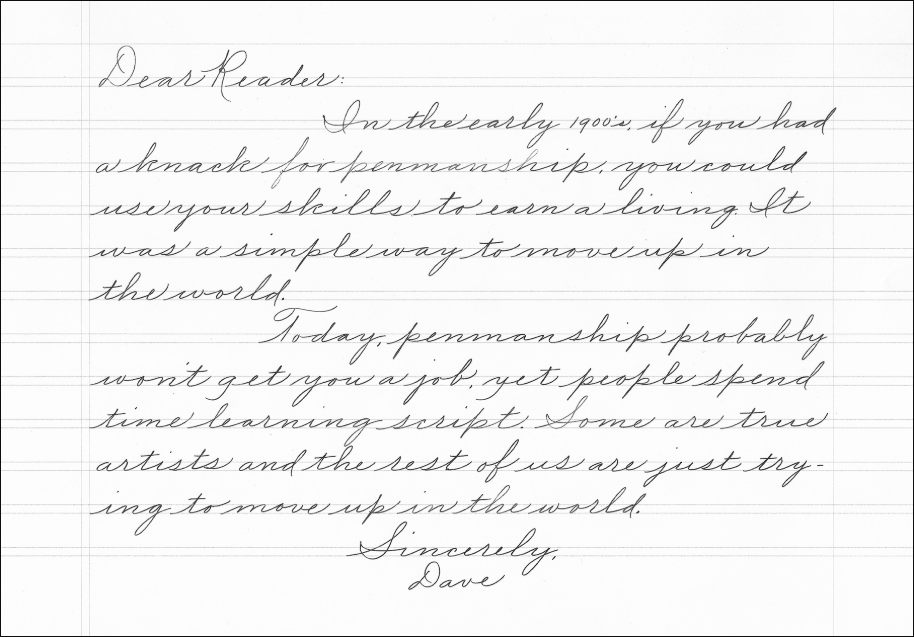 Dear Reader:
In the early 1900's, if you had
a knack for penmanship, you could
use your skills to earn a living. It
was a simple way to move up in
the world.
Today, penmanship probably
won't get you a job, yet people spend
time learning script. Some are true
artists and the rest of us are just try-
ing to move up in the world.
Sincerely,
Dave